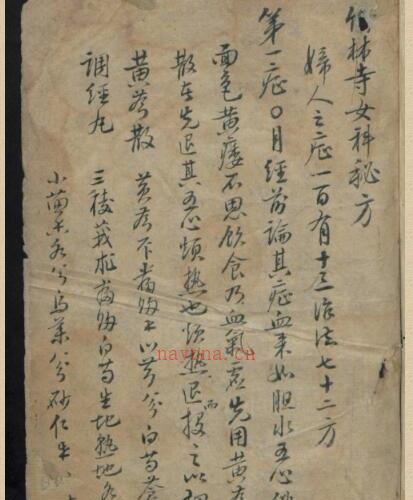 竹林寺女科秘方
婦人之症一百有十三治法七十二方
第一症〇月經前論其症血来如胆水五心
面色黄痿不思飲食乃血氣衰先用黄
散在先退其五心煩熱也煩熱退後
黄芩散 黄芩下 當歸 川芎 白芍 蒼
調經丸 三稜莪朮當歸白芍生地熟地
小茴 各 兮烏薬 兮砂仁
nayona.cn